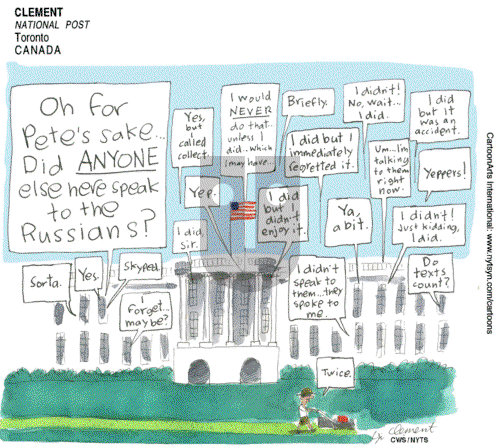 CLEMENT
NATIONAL POST
Toronto
CANADA
Oh for
Pete's sake...
Did ANYONE
else here speak
to the
Russians?
Yes,
but I
called
collect.
I would
NEVER
do that...
unless I
did...which
I may have.
Briefly.
I didn't!
No, wait...
I did.
I did
but it
was an
accident.
Yep.
I did but I
immediately
regretted it.
Um...I'm
talking
to them
right
now.
Yeppers!
I did,
sir.
I did
but I
didn't
enjoy it.
Ya,
a bit.
I didn't!
Just kidding,
I did.
Sorta.
Yes.
Skyped.
I
forget...
maybe?
I didn't
speak to
them...they
spoke to
me.
Do
texts
count?
Twice.
clement
CWS/NYTS
CartoonArts International: www.nytsyn.com/cartoons